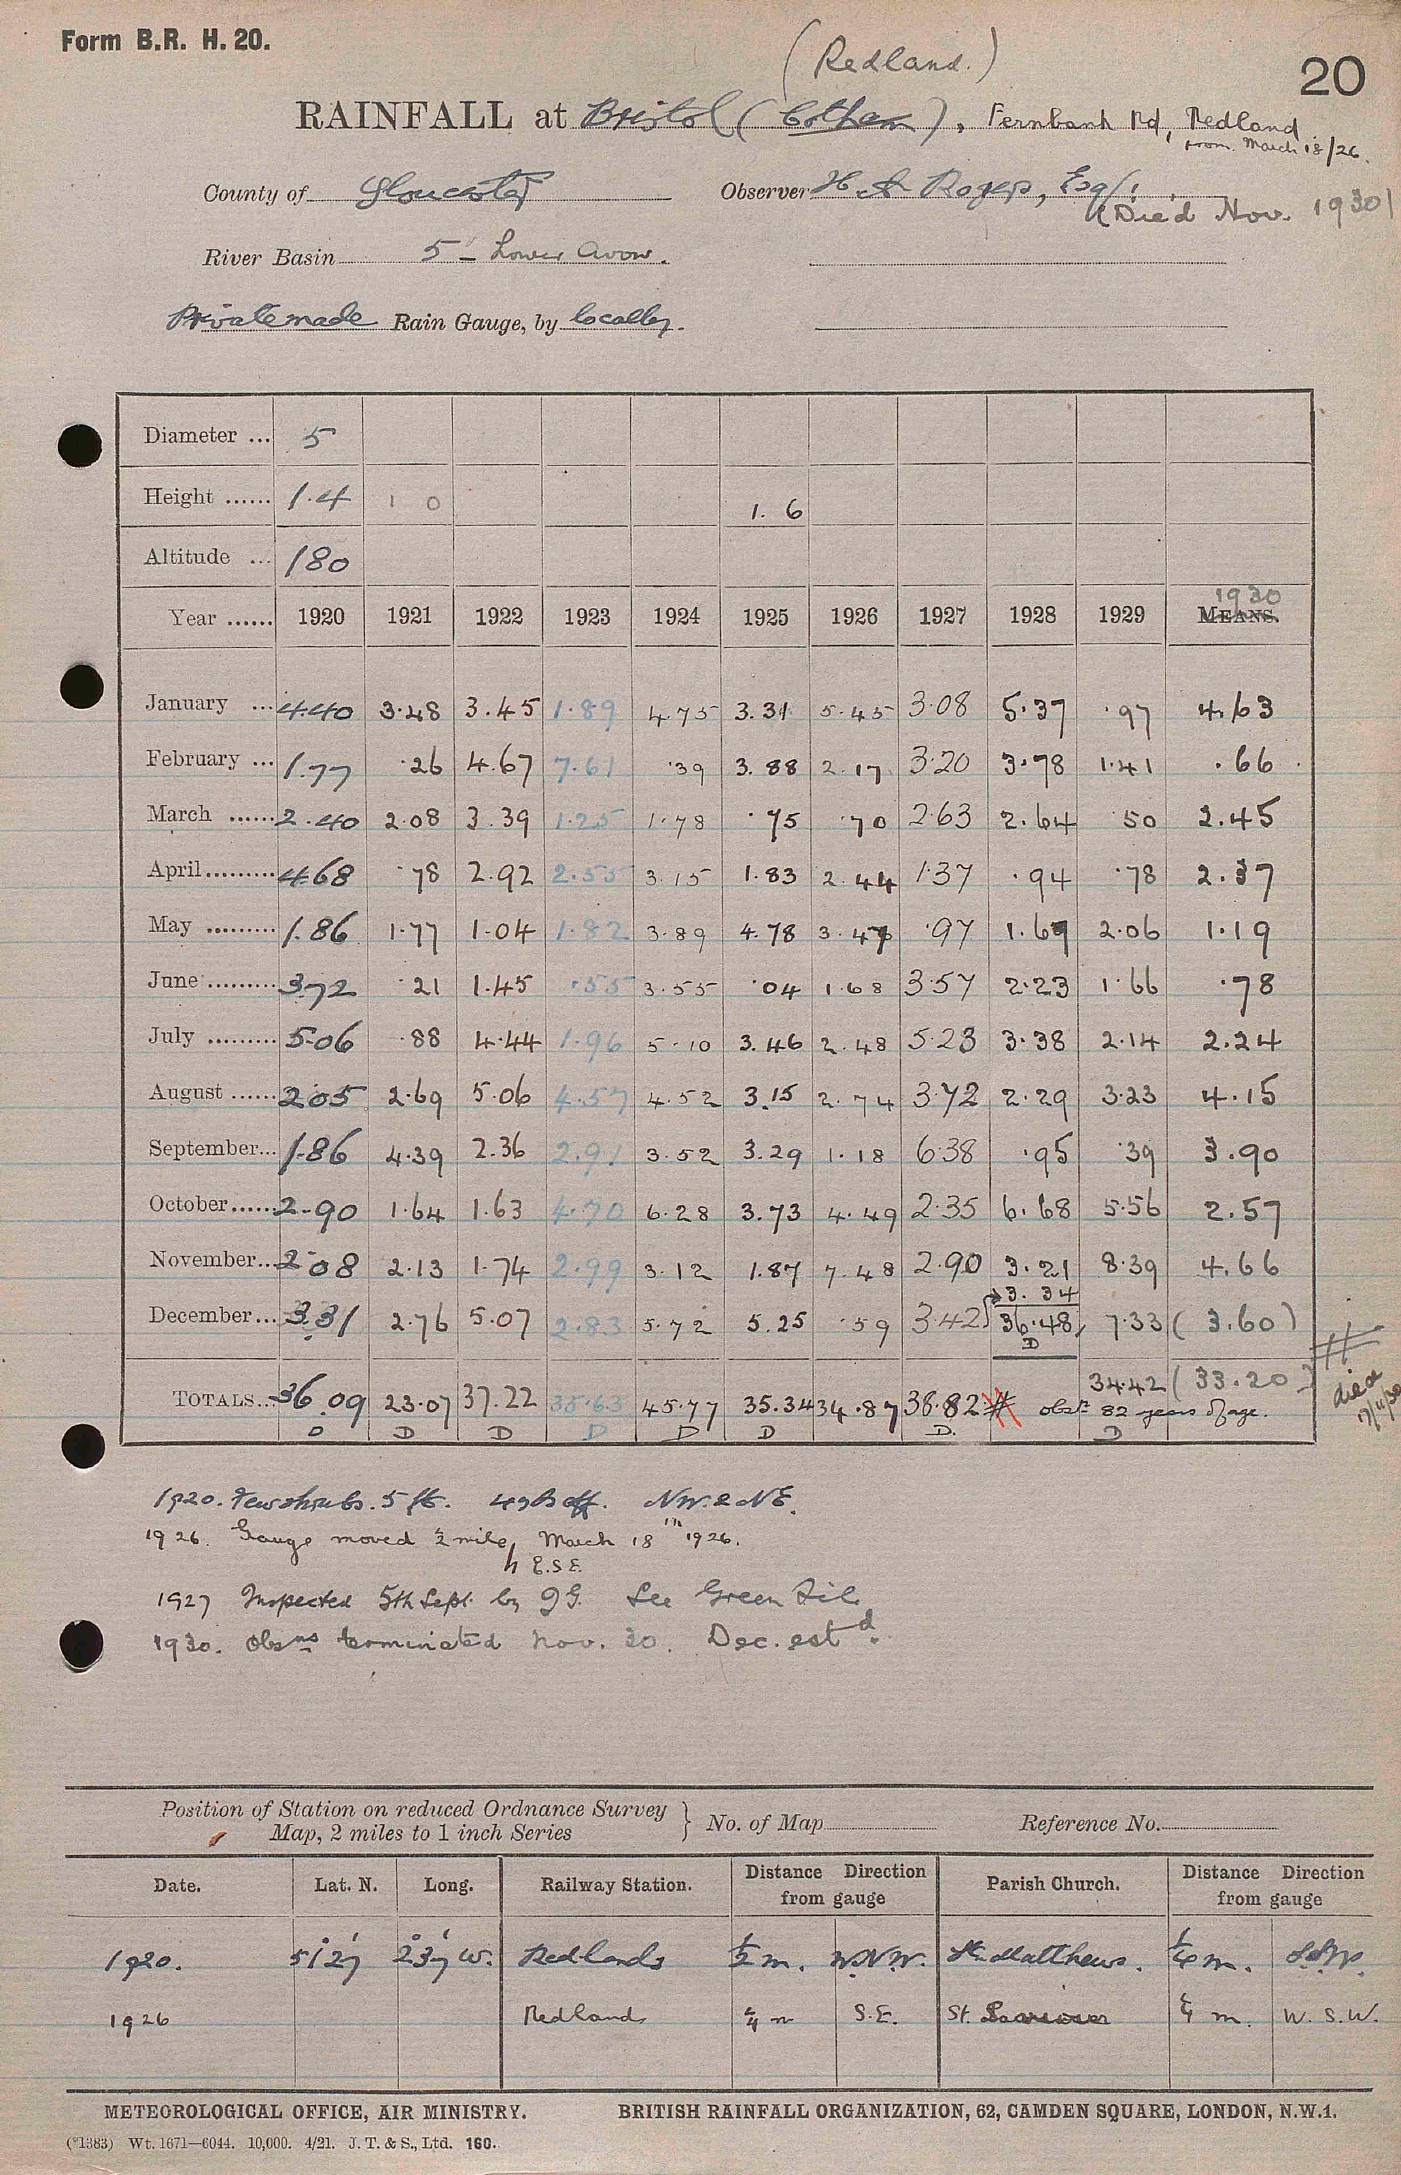 Form B.R. H. 20.
(Redland.)
20
RAINFALL at Bristol (Cotham), Fernbank Rd, Redland
from March 18/26.
County of Gloucester Observer H A Rogers, Esq.
(Died Nov. 1930)
River Basin 5 - Lower Avon.
Private made Rain Gauge, by locally.
Diameter ... 5
Height ...... 1.4 1 0 1. 6
Altitude ... 180
1930
Year ...... 1920 1921 1922 1923 1924 1925 1926 1927 1928 1929 MEANS.
January ... 4.40 3.48 3.45 1.89 4.75 3.31 5.45 3.08 5.37 .97 4.63
February ... 1.77 .26 4.67 7.61 .39 3.88 2.17 3.20 3.78 1.41 .66
March ...... 2.40 2.08 3.39 1.25 1.78 .75 .70 2.63 2.64 .50 2.45
April ......... 4.68 .78 2.92 2.55 3.15 1.83 2.44 1.37 .94 .78 2.37
May ......... 1.86 1.77 1.04 1.82 3.89 4.78 3.47 .97 1.69 2.06 1.19
June ......... 3.72 .21 1.45 .55 3.55 .04 1.68 3.57 2.23 1.66 .78
July ......... 5.06 .88 4.44 1.96 5.10 3.46 2.48 5.23 3.38 2.14 2.24
August ...... 2.05 2.69 5.06 4.57 4.52 3.15 2.74 3.72 2.29 3.23 4.15
September ... 1.86 4.39 2.36 2.91 3.52 3.29 1.18 6.38 .95 .39 3.90
October ...... 2.90 1.64 1.63 4.70 6.28 3.73 4.49 2.35 6.68 5.56 2.57
November ... 2.08 2.13 1.74 2.99 3.12 1.87 7.48 2.90 3.21 8.39 4.66
3.34
December ... 3.31 2.76 5.07 2.83 5.72 5.25 .59 3.42 36.48 7.33 (3.60)
D
TOTALS... 36.09 23.07 37.22 35.63 45.77 35.34 34.87 38.82 # 34.42 (33.20)
obsr. 82 years of age.
D D D D D D D. D
# died 17/11/30
1920. Few shrubs. 5 ft. 4 yds off. NW. & NE.
1926. Gauge moved ½ mile, March 18th 1926.
E.S.E.
1927 Inspected 5th Sept. by J G. See Green File
1930. Obsns terminated Nov. 30. Dec. estd.
Position of Station on reduced Ordnance Survey Map, 2 miles to 1 inch Series } No. of Map Reference No.
Date. Lat. N. Long. Railway Station. Distance Direction from gauge Parish Church. Distance Direction from gauge
1920. 51° 27' 2° 37' W. Redlands ½ m. W.N.W. St. Matthews. ¼ m. S.S.W.
1926 Redlands ¼ m S.E. St. ¼ m. W. S.W.
METEOROLOGICAL OFFICE, AIR MINISTRY. BRITISH RAINFALL ORGANIZATION, 62, CAMDEN SQUARE, LONDON, N.W.1.
(*1383) Wt. 1671—6044. 10,000. 4/21. J. T. & S., Ltd. 160.